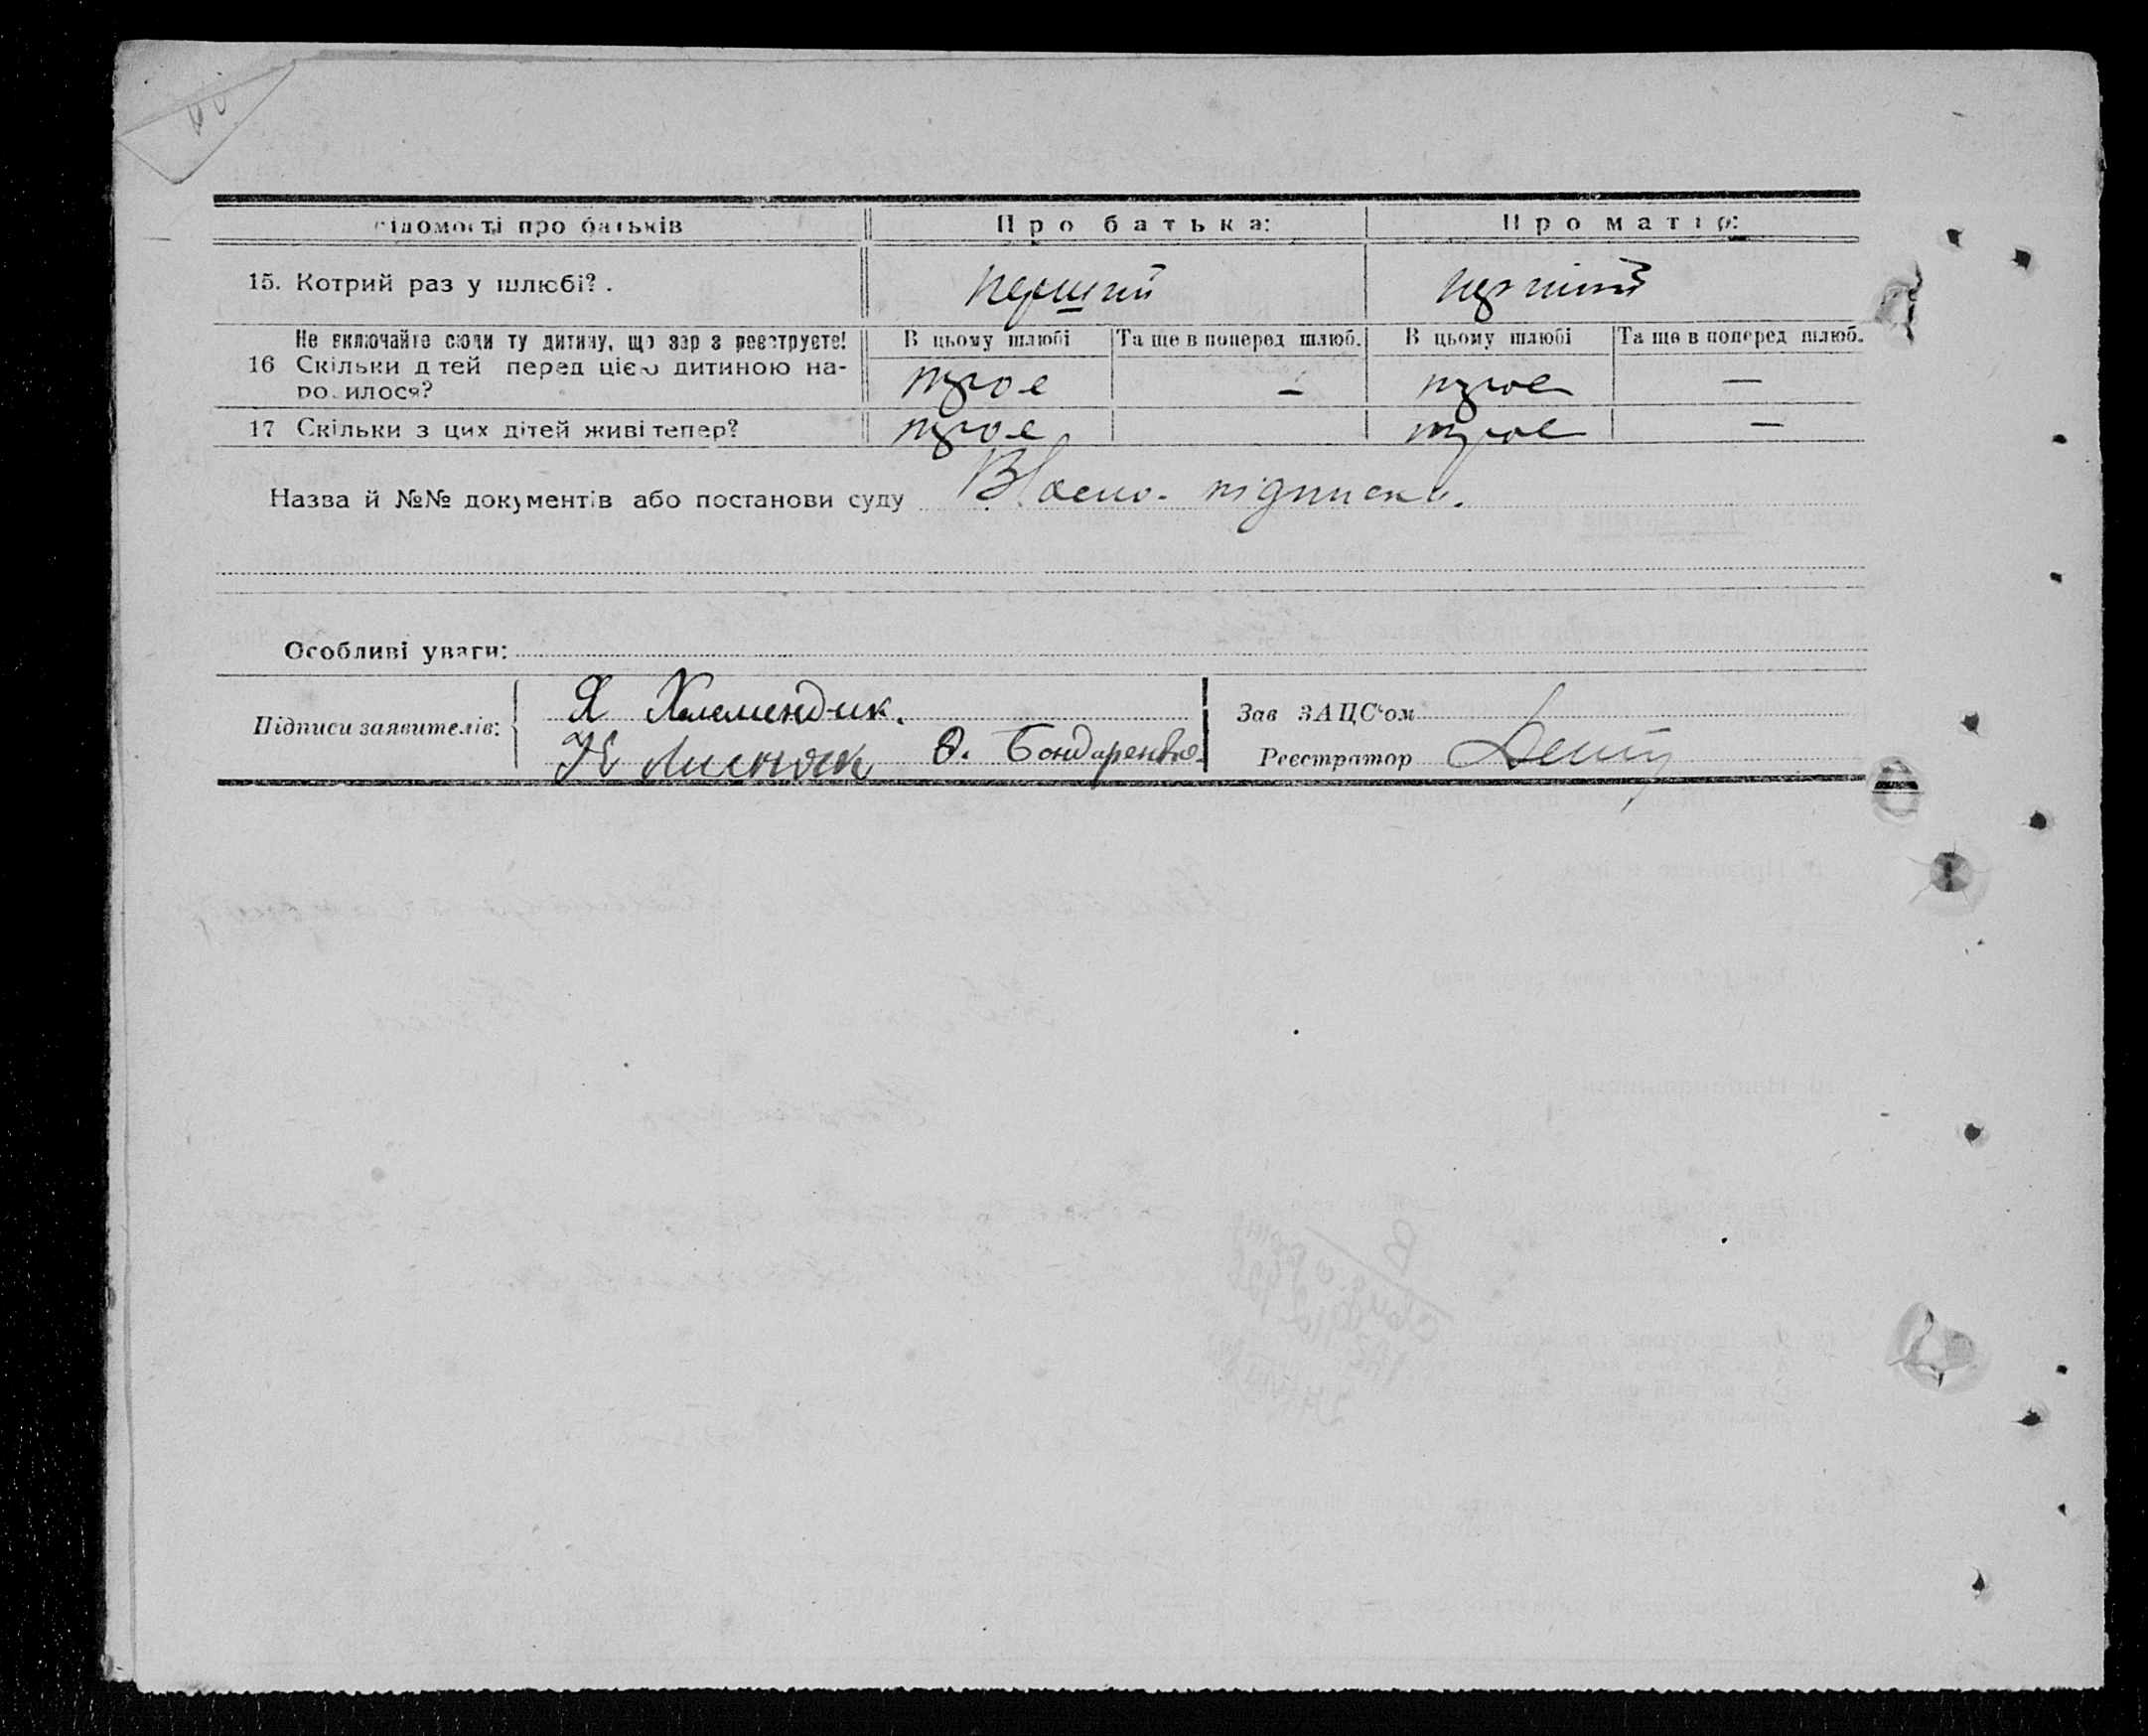 відомості про батьків
Про батька:
Про матір:
15. Котрий раз у шлюбі? .
перший
перший
Не включайте сюди ту дитину, що зараз реєструєте!
В цьому шлюбі
Та ще в поперед шлюб.
В цьому шлюбі
Та ще в поперед шлюб.
16 Скільки дітей перед цією дитиною на-
родилося?
троє
—
троє
—
17 Скільки з цих дітей живі тепер?
троє
троє
—
Назва й №№ документів або постанови суду
підписка.
Особливі уваги:
Підписи заявителів:
Я Хелемендик.
О. Бондаренко
Зав ЗАЦС'ом
Реєстратор